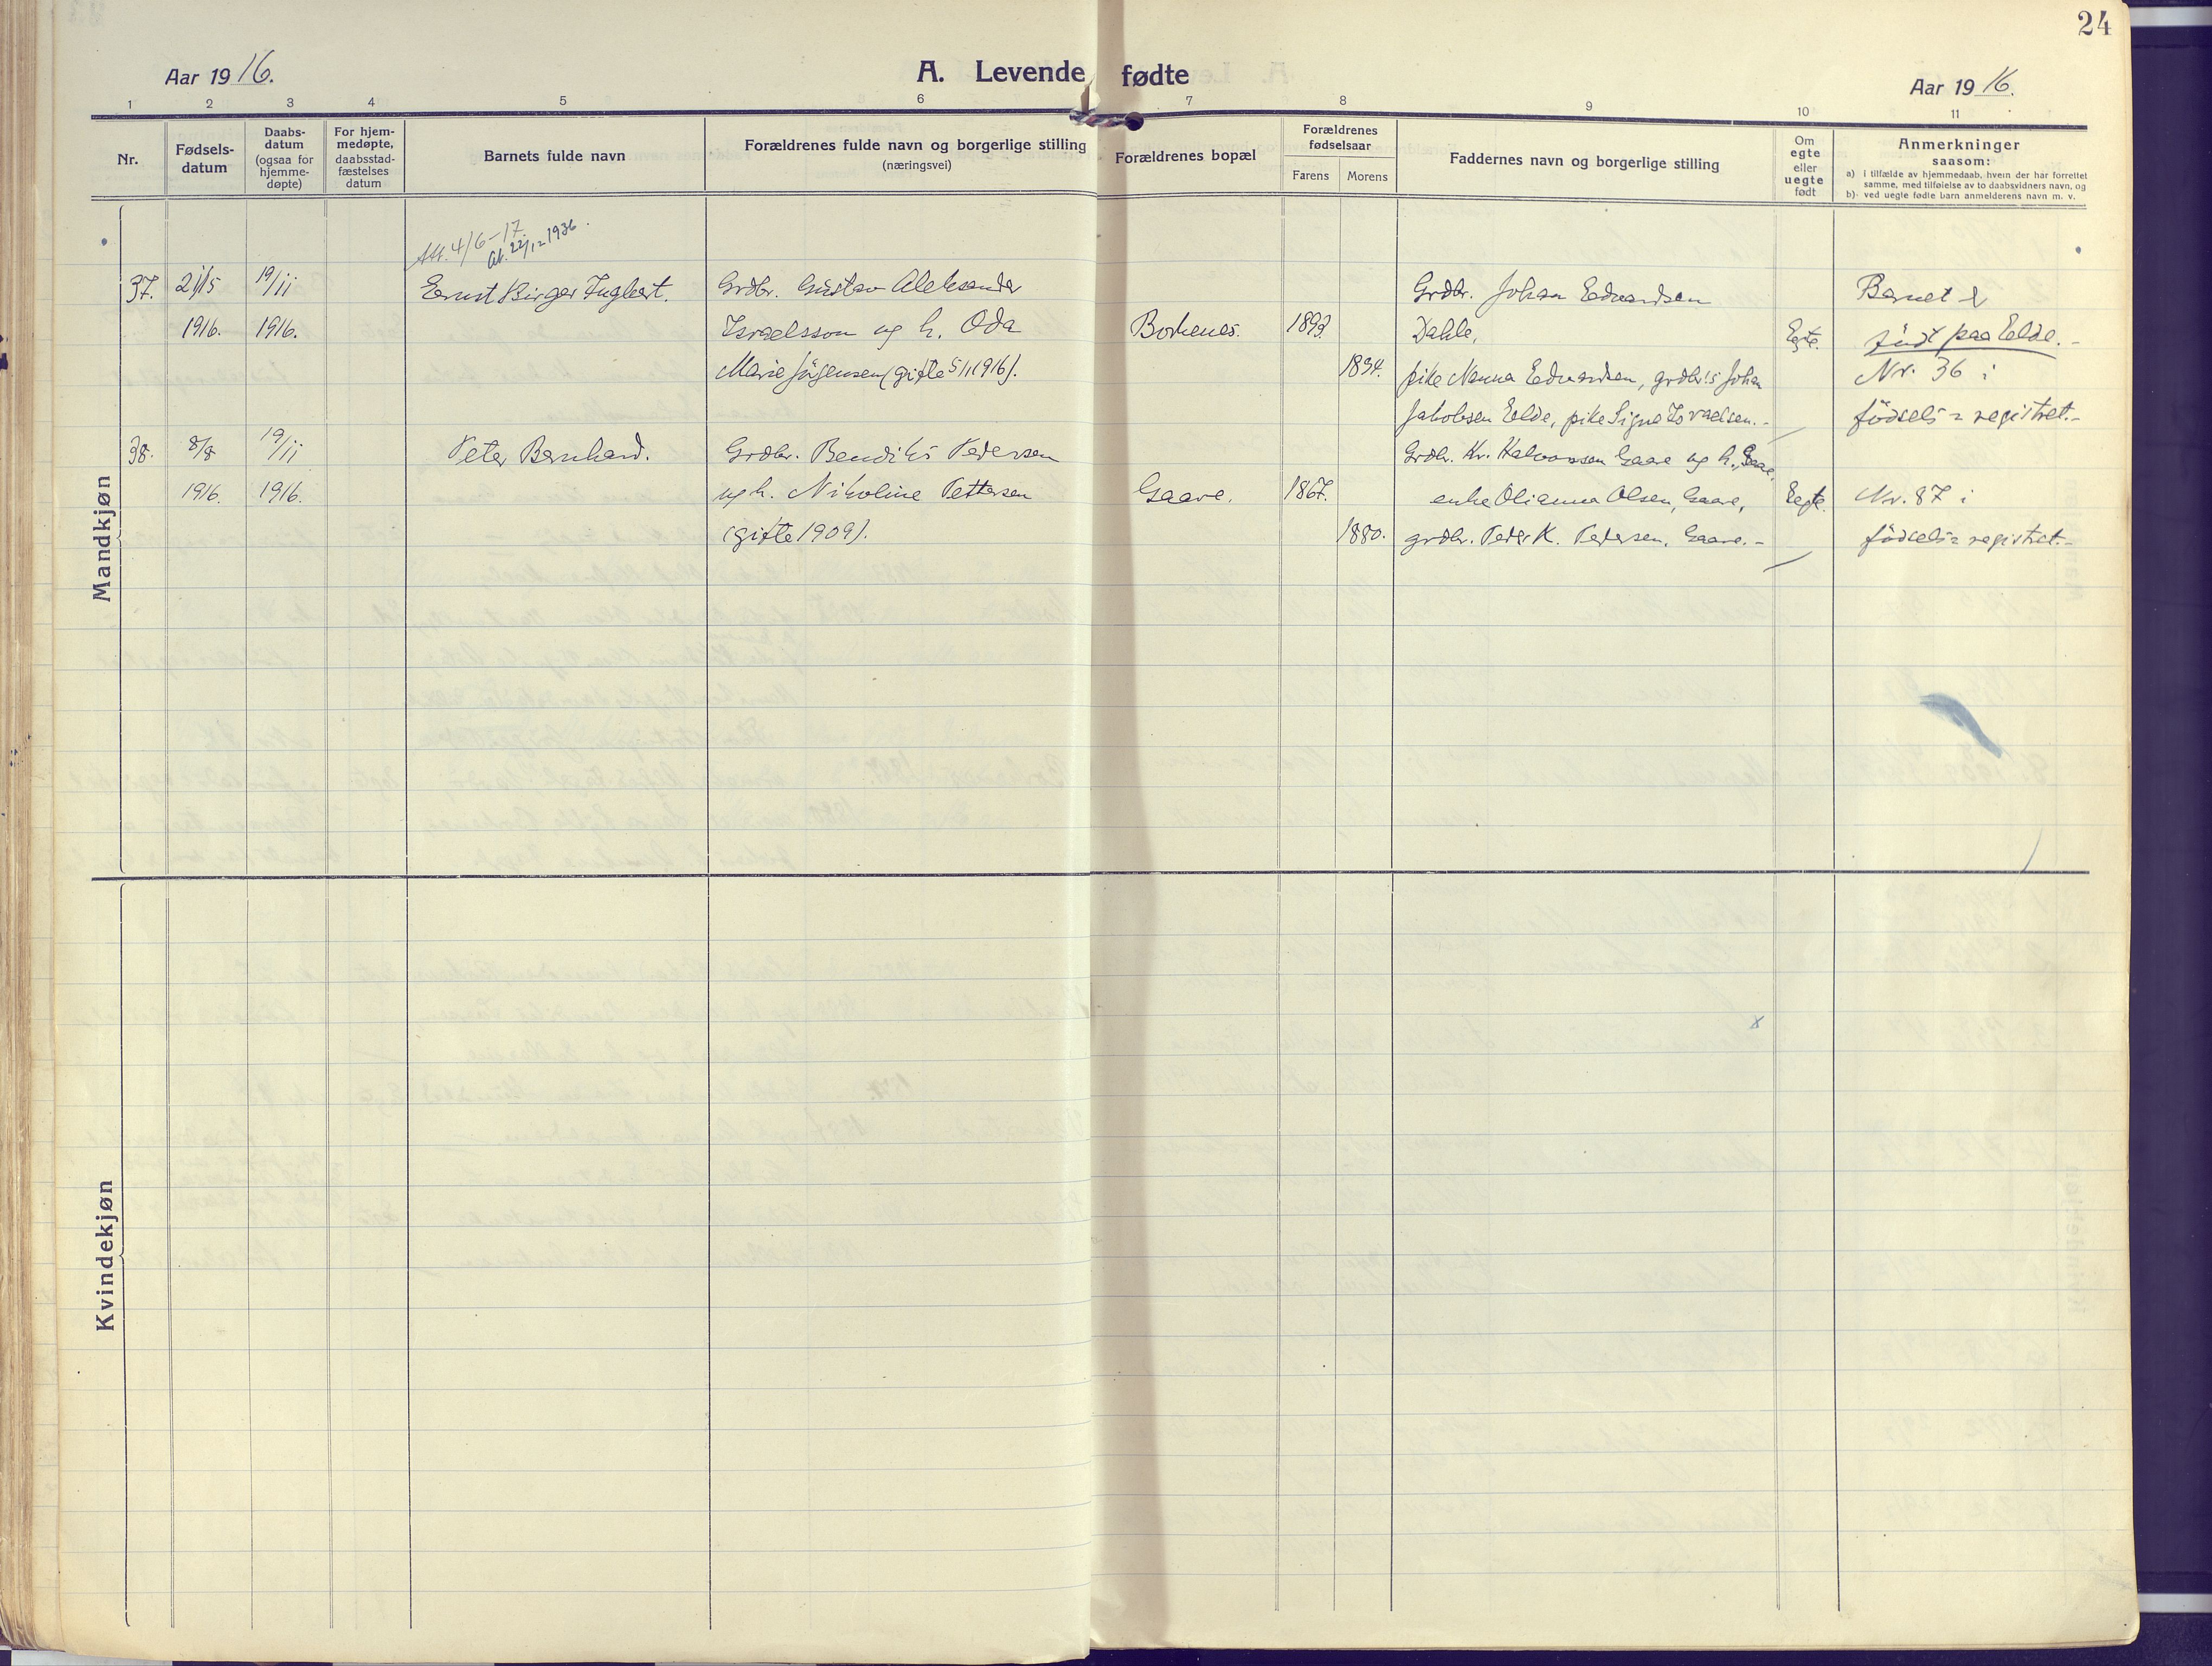 24
Aar 1916.
A. Levende fødte
Aar 1916.
1 2 3 4 5 6 7 8 9 10 11
Nr.
Fødsels-
datum
Daabs-
datum
(ogsaa for
hjemme-
døpte)
For hjem-
medøpte,
daabsstad-
fæstelses
datum
Barnets fulde navn
Forældrenes fulde navn og borgerlige stilling
(næringsvei)
Forældrenes bopæl
Forældrenes
fødselsaar
Farens Morens
Faddernes navn og borgerlige stilling
Om
egte
eller
uegte
født
Anmerkninger
saasom:
a) i tilfælde av hjemmedaab, hvem der har forrettet
samme, med tilføielse av to daabsvidners navn, og
b) ved uegte fødte barn anmelderens navn m. v.
Mandkjøn
Att. 4/6-17.
at. 22/12 1936.
37. 21/5 19/11 Ernst Birger Ingbert. Grdbr. Gustav Aleksander Grdbr. Johan Edvardsen Barnet er
1916. 1916. Israelsson og h. Oda Borkenes. 1893. Dahle, Egte. født paa Elde.-
Marie Jörgensen (gifte 5/1 1916). 1894. pike Nanna Edvardsen, grdbr's Johan Nr. 36 i
Jakobsen Elde, pike Signe Israelsen.- födsels= registret.-
38. 8/8 19/11 Peter Bernhard. Grdbr. Bendiks Pedersen Grdbr. Kr. Kalvaassen Gaare og h., Gaare,
1916. 1916. og h. Nikoline Pettersen Gaare. 1867. enke Olianna Olsen, Gaare, Egte. Nr. 87 i
(gifte 1909). 1880. grdbr. Peder K. Pedersen, Gaare.- födsels= registret.-
Kvindekjøn
x